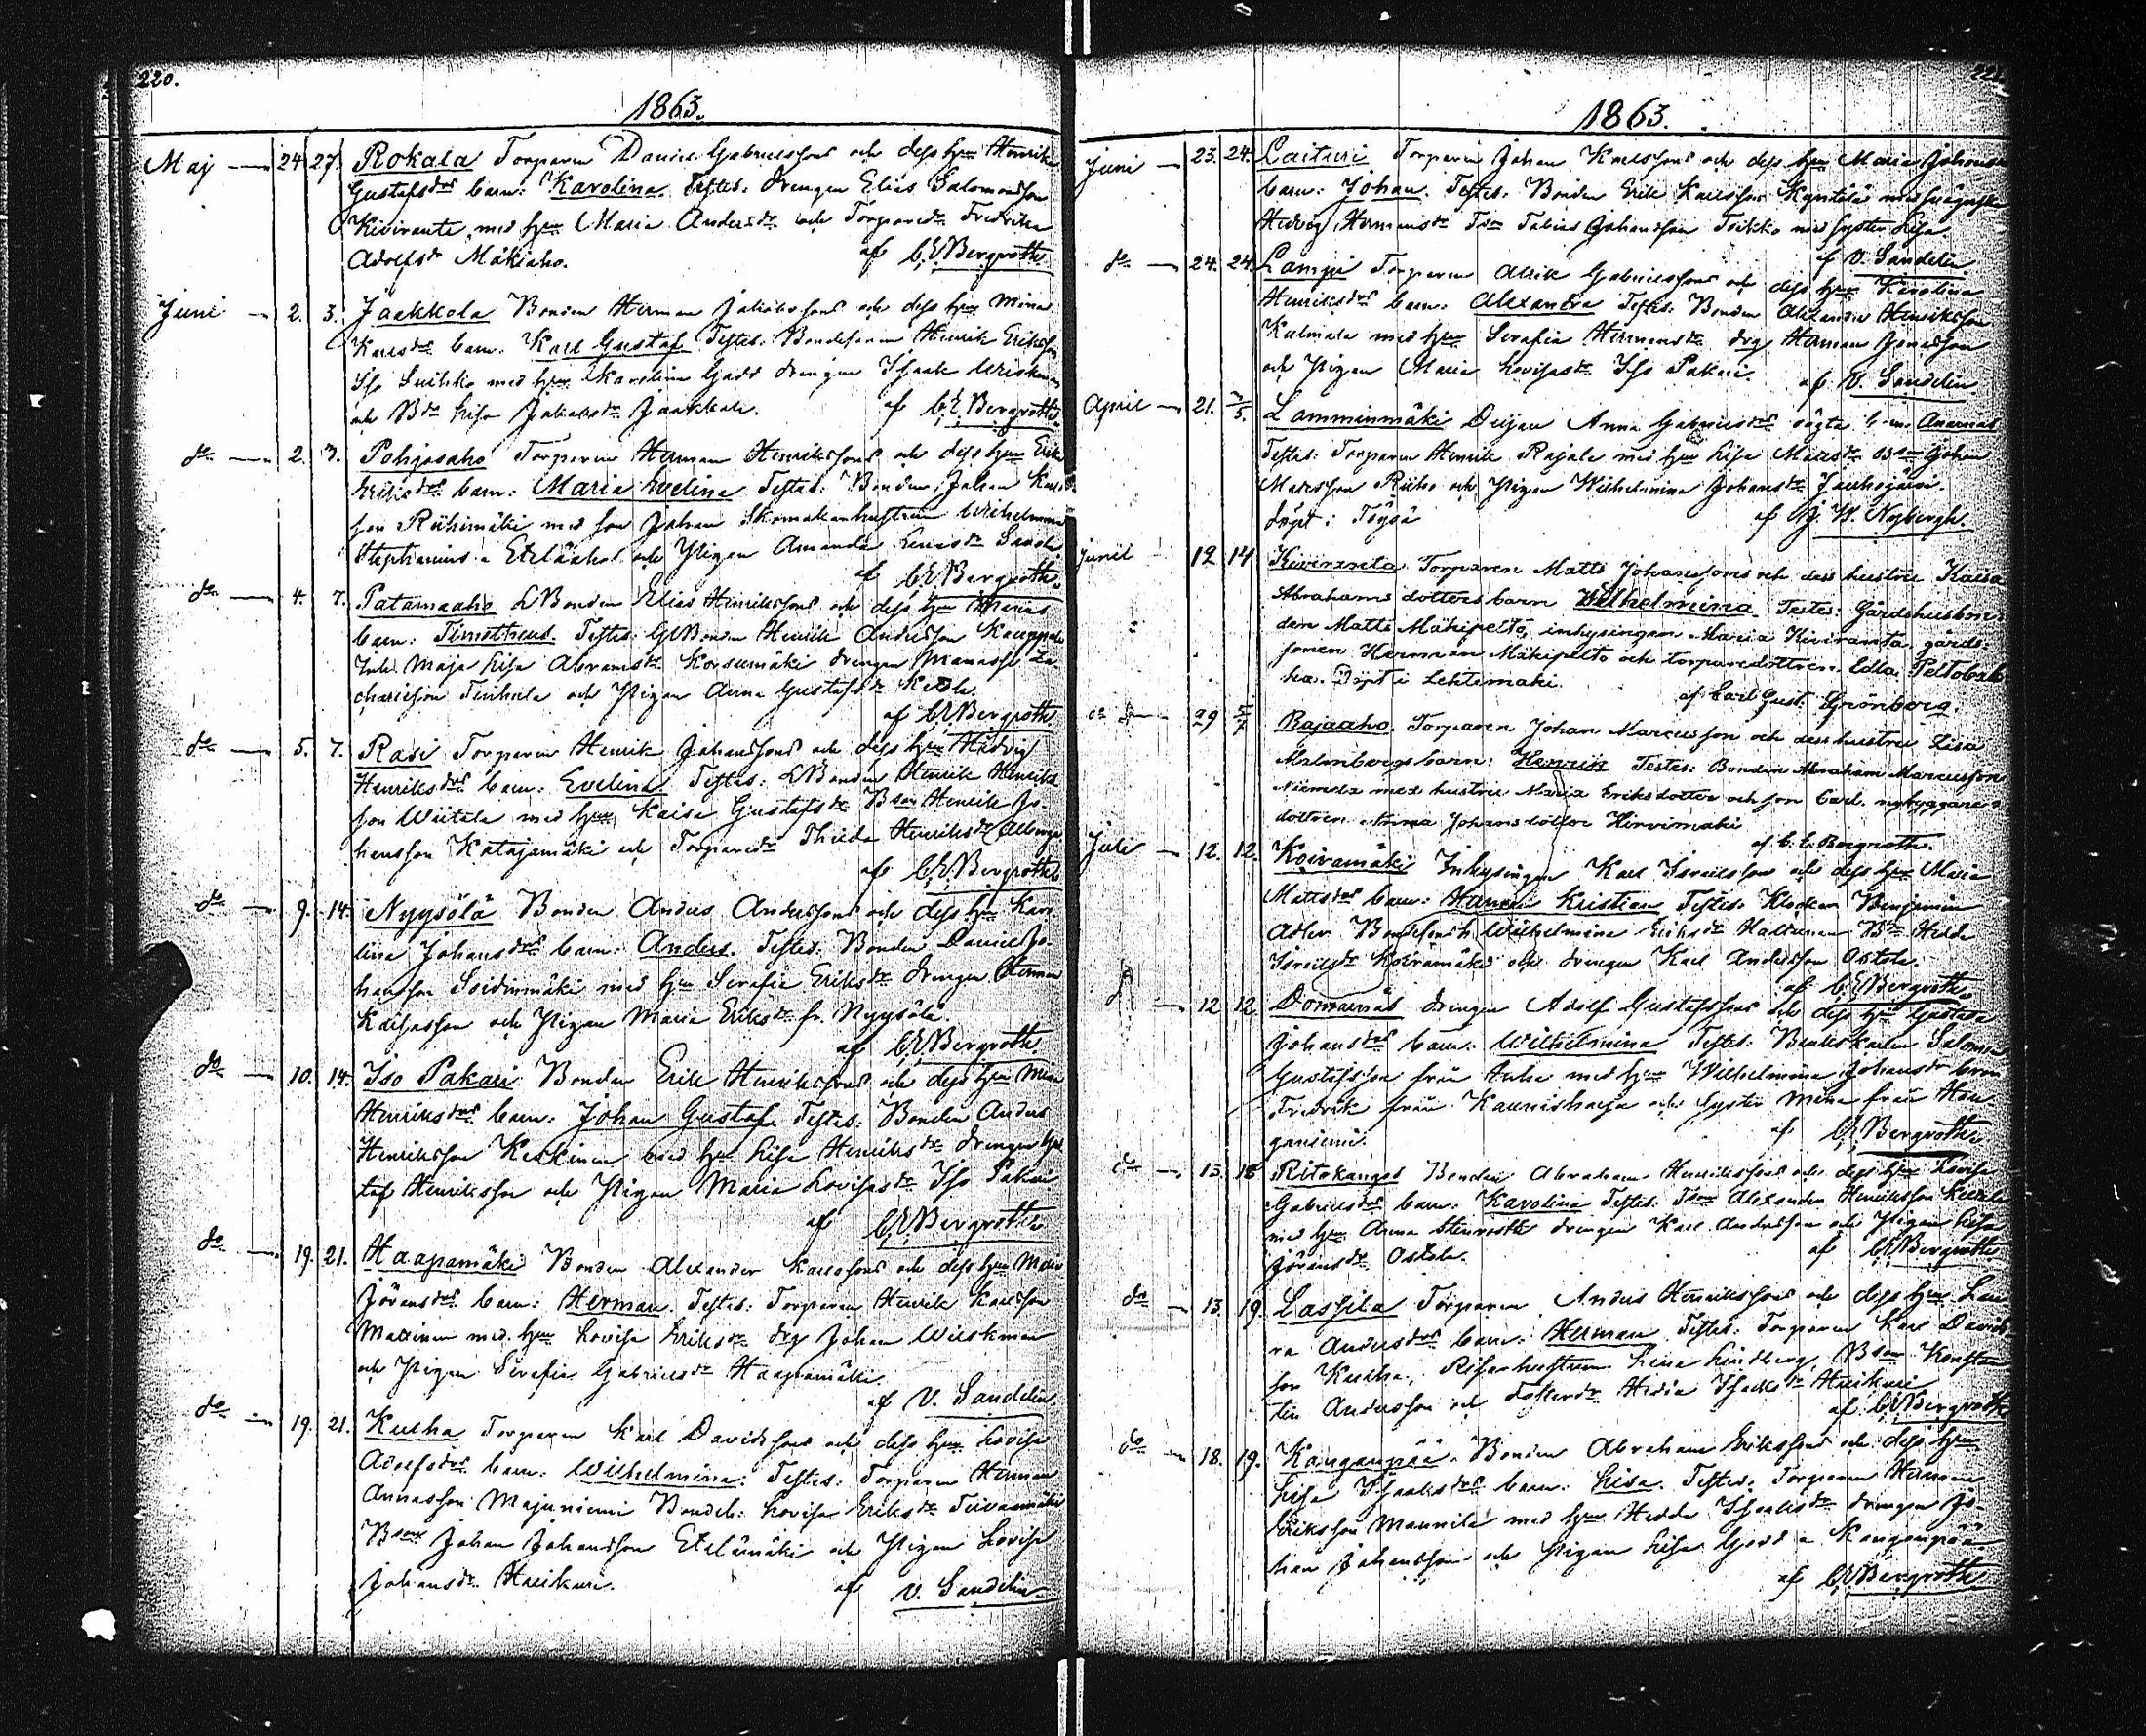 220.
1863.
Maj 24 27. Rokala Torparen Daniel Gabrielssons och dess hu Henrika
Gustafsdrs barn: Karolina. Testes: drengen Elias Salomonsson
Kiviranta med hu Maria Andersdr och Torparedr Fredrika
Adolfsdr Mäkiaho. af C. E. Bergroth.
Juni 2. 3. Jaakkola Bonden Herman Jakobssons och dess hu Mina
Karlsdrs barn. Karl Gustaf Testes: Bondesonen Henrik Eriksson
Iso med hu Karolina Gadd drengen Isaak
och Bdr Lisa Jakobsdr Jaakkola. af C. E. Bergroth.
do 2. 3. Pohjasaho Torparen Herman Henrikssons och dess hu Erika
Eriksdrs barn: Maria Evelina Testes: Bonden Johan Karls
son Riihimäki med son Johan Skomakarhustrun Wilhelmina
Etelääho och Pigan Amanda
af C. E. Bergroth.
do 4. 7. Patamaaho LBonden Elias Henrikssons och dess hu Marias
barn: Timotheus. Testes: Bonden Henrik Andersson Kauppila
Maja Lisa Abramsdr Korsumäki drengen Manasse Za
chariesson och Pigan Anna Gustafsdr
af C. E. Bergroth.
do 5. 7. Rasi Torparen Henrik Johanssons och dess hu Hedvig
Henriksdrs barn: Evelina. Testes: LBonden Henrik Henriks
son Wiitala med hu Kaisa Gustafsdr Bson Henrik Jo
hansson Katajamäki och Torparedr Thilda Henriksdr
af C. E. Bergroth.
do 9. 14. Nyysölä Bonden Anders Anderssons och dess hu Karo
lina Johansdrs barn: Anders. Testes: Bonden Daniel Jo
hansson Soidinmäki med hu Serafia Eriksdr drengen Herman
Kaisasson och Pigan Maria Eriksdr fr. Nyysölä.
af C. E. Bergroth.
do 10. 14. Iso Pakari Bonden Erik Henrikssons och dess hu Mina
Henriksdrs barn: Johan Gustaf. Testes: Bonden Anders
Henriksson Keckinen med hu Lisa Henriksdr drengen Gus
taf Henriksson och Pigan Maria Lovisasdr Iso Pakari
af C. E. Bergroth
do 19. 21. Haapamäki Bonden Alexander Karlssons och dess hu Maria
Jöransdrs barn: Herman. Testes: Torparen Henrik Karlsson
med hu Lovisa Eriksdr drg Johan
och Pigan Serafia Gabrielsdr Haapamäki.
af V. Sandelin
do 19. 21. Kultha Torparen Karl Davidssons och dess hu Lovisa
Adolfsdrs barn: Wilhelmina. Testes: Torparen Herman
Annasson Majaniemi Bondeh: Lovisa Eriksdr
Bson Johan Johansson Etelämäki och Pigan Lovisa
Johansdr Haukuri. af V. Sandelin.
1863.
Juni 23. 24. Laituri Torparen Johan Karlssons och dess hu Maria Johans
barn: Johan. Testes: Bonden Erik Karlsson
Hedvig Hermansdr Tson Tobias Johansson med syster Lisa.
af V. Sandelin
do 24. 24. Lampi Torparen Gabrielssons och dess hu Karolina
Henriksdrs barn: Alexandra Testes: Bonden Alexander Henriksson
Kulmala med hu Serafia Hermansdr drg Herman Jonasson
och Pigan Maria Lovisasdr Iso Pakari. af V. Sandelin
April 21. 3/5. Lamminmäki Anna Gabrielsdrs oägta Ananias
Testes: Torparen Henrik Rajala med hu Lisa Matsdr Bson Johan
Matsson Riiho och Pigan Wilhelmina Johansdr Jauhojärvi.
döpt i Töysä af J. W. Nybergh.
Junii 12 14 Kiviranta Torparen Matts Johanssons och dess hustru Kaisa
Abrahams dotters barn Wilhelmina Testes: Gårdshusbon
den Matts Mäkipelto, inhysingen Maria Kiviranta, gårds-
sonen Herman Mäkipelto och torparedottren Edla Peltobak
ka. Döpt i Lehtimäki. af Carl Gust. Grönberg.
29 5/7 Rajaaho. Torparen Johan Marcusson och dess hustru Lisa
Malmbergs barn: Henrik Testes: Bonden Abraham Marcusson
Niemelä med hustru Maria Eriksdotter och son Carl, nybyggare
dottren Anna Johansdotter Hirvimäki
af C. E. Bergroth.
Juli 12. 12. Koivamäki Inhysingen Karl Israelsson och dess hu Maria
Mattsdrs barn: Herman Kristian Testes: Klockar Benjamin
Adler Wilhelmina Eriksdr Haltunen Bdr Hedda
Israelsdr Koivamäki och drengen Karl Andersson Ostola.
af C. E. Bergroth.
12 12 Domarnäs drengen Adolf Gustafssons och dess hu Gustava
Johansdrs barn: Wilhelmina Testes: Salomon
Gustafsson från med hu Wilhelmina Johansdr bror
Fredrik från Kaunisharju och syster Mina från Hon
ganiemi. af C. E. Bergroth.
do 13. 18 Ritokangas Bonden Abraham Henrikssons och dess hu Lovisa
Gabrielsdrs barn: Karolina Testes: Tson Alexander Henriksson
med hu Anna Stenroth drengen Karl Andersson och Pigan Lisa
Jöransdr Ostola. af C. E. Bergroth.
do 13. 19. Lassila Torparen Anders Henrikssons och dess hu Lau
ra Andersdrs barn: Herman Testes: Torparen Karl Davids
son Kultha, hustrun Lena Lindberg, Bson Konstan
tin Andersson och Hedda Isaksdr Haukuri
af C. E. Bergroth
do 18. 19. Kangaspää. Bonden Abraham Erikssons och dess hu
Lisa Isaaksdrs barn: Lisa. Testes: Torparen Herman
Eriksson Mannila med hu Hedda Isaaksdr drengen Jo
han Johansson och Pigan Lisa Kangaspää
af C. E. Bergroth